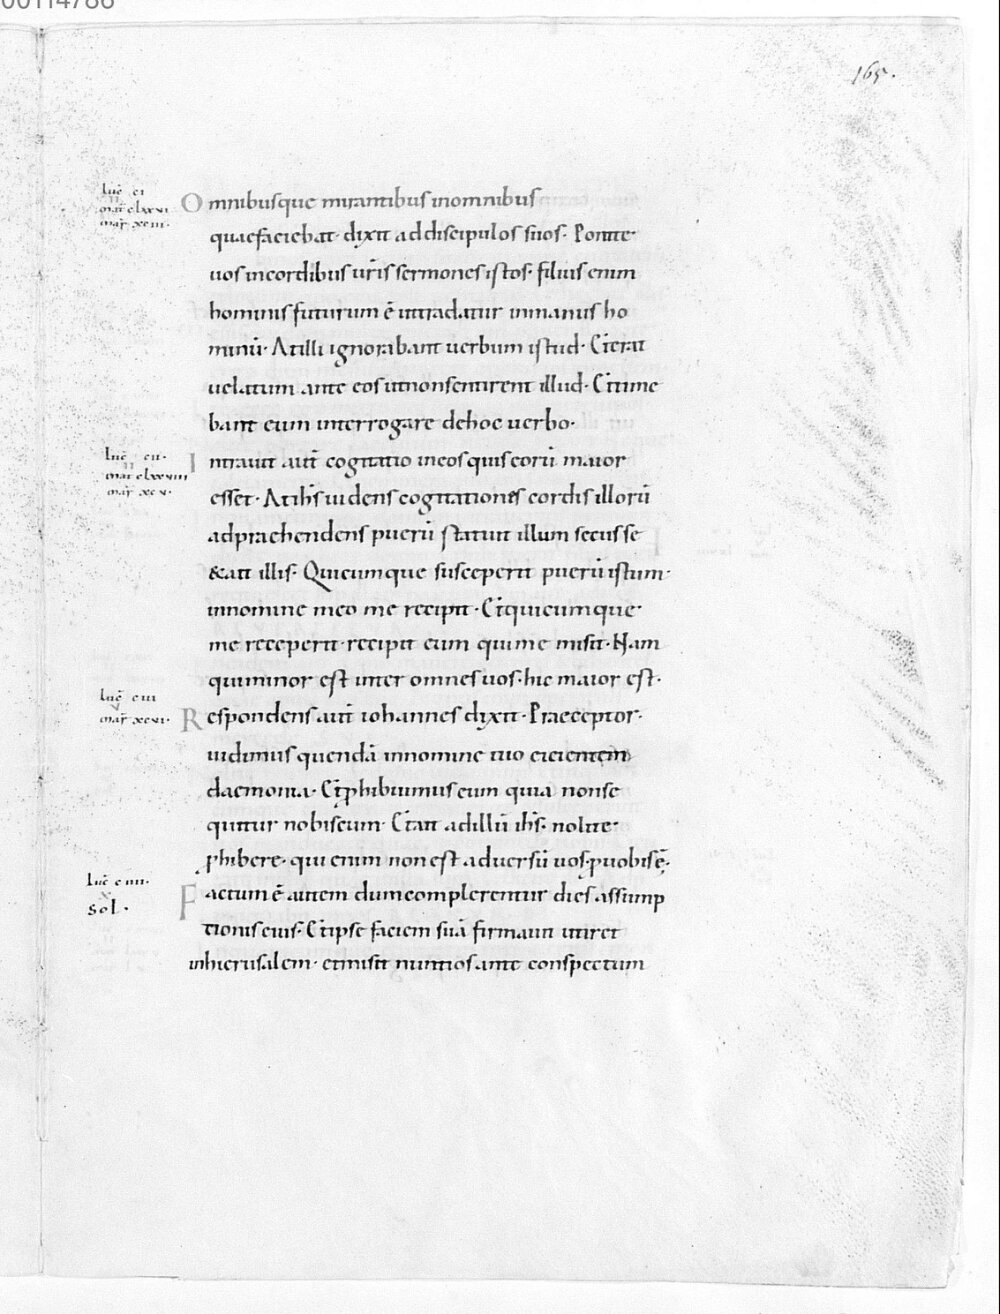 00114786
165.
luc̄ ci
mat̄ clxxvi
mar̄ xciii·
Omnibusque mirantibus inomnibus
quaefaciebat· dixit addiscipulos suos· Ponite
uos incordibus ur̄is sermones istos· filius enim
hominis futurum ē uttradatur inmanus ho
minū· Atilli ignorabant uerbum istud· Eterat
uelatum ante eos utnonsentirent illud· Etime
bant eum interrogare dehoc uerbo·
luc̄ cii·
mat̄ clxxviiii
mar̄ xcv·
Intrauit aut̄ cogitatio ineos quis eorū maior
esset· Atih̄s uidens cogitationes cordis illorū
adpraehendens puerū statuit illum secus se
&ait illis· Quicumque susceperit puerū istum·
innomine meo me recipit· Etquicumque·
me receperit· recipit eum qui me misit· Nam
quiminor est inter omnes uos· hic maior est·
luc̄ ciii
mar̄ xcvi·
Respondens aut̄ iohannes dixit· Praeceptor·
uidimus quendā innomine tuo eicientem
daemonia· Et ꝓhibuimus eum quia nonse
quitur nobiscum· Etait adillū ih̄s· nolite
ꝓhibere· qui enim non est aduersū uos· ꝓuobis ē·
luc̄ ciiii·
x·
sol·
Factum ē autem dumcomplerentur dies assump
tionis eius· Etipse faciem suā firmauit utiret
inhierusalem· etmisit nuntios ante conspectum